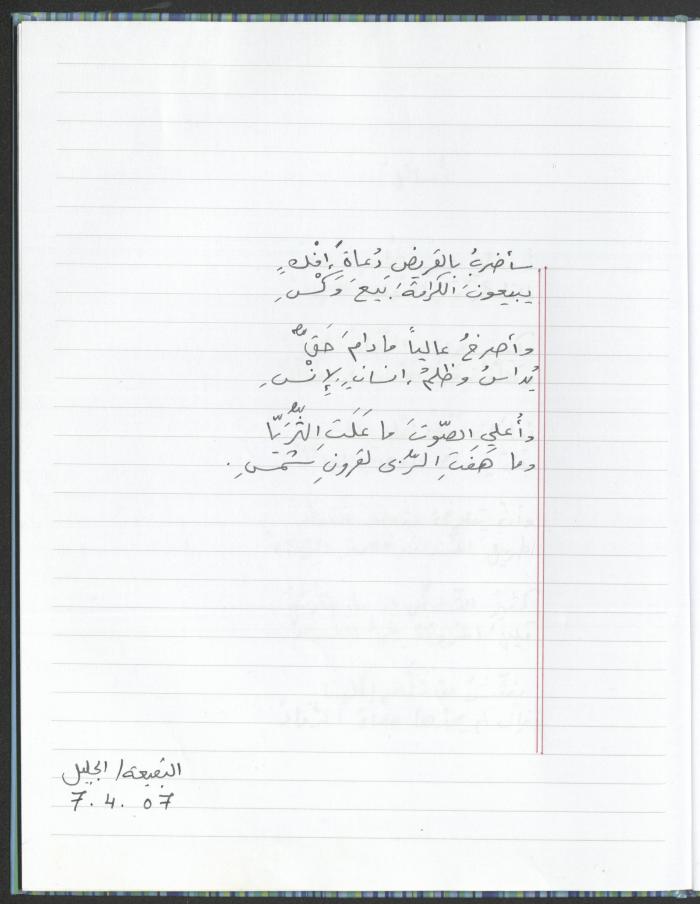 سأضربُ بالقريضِ دُعاةَ إفْكٍ
يبيعونَ الكرامةَ بَيعَ وَكْسِ
وأصرخُ عالياً مادامَ حَقٌّ
يُداسُ وظلمُ انسانٍ لإِنْسِ
وأُعلي الصّوتَ ما عَلَتِ الثُّرَيّا
وما هَفَتِ الرُّبى لقرونِ شمسِ.
البقيعة/الجليل
7.4.07